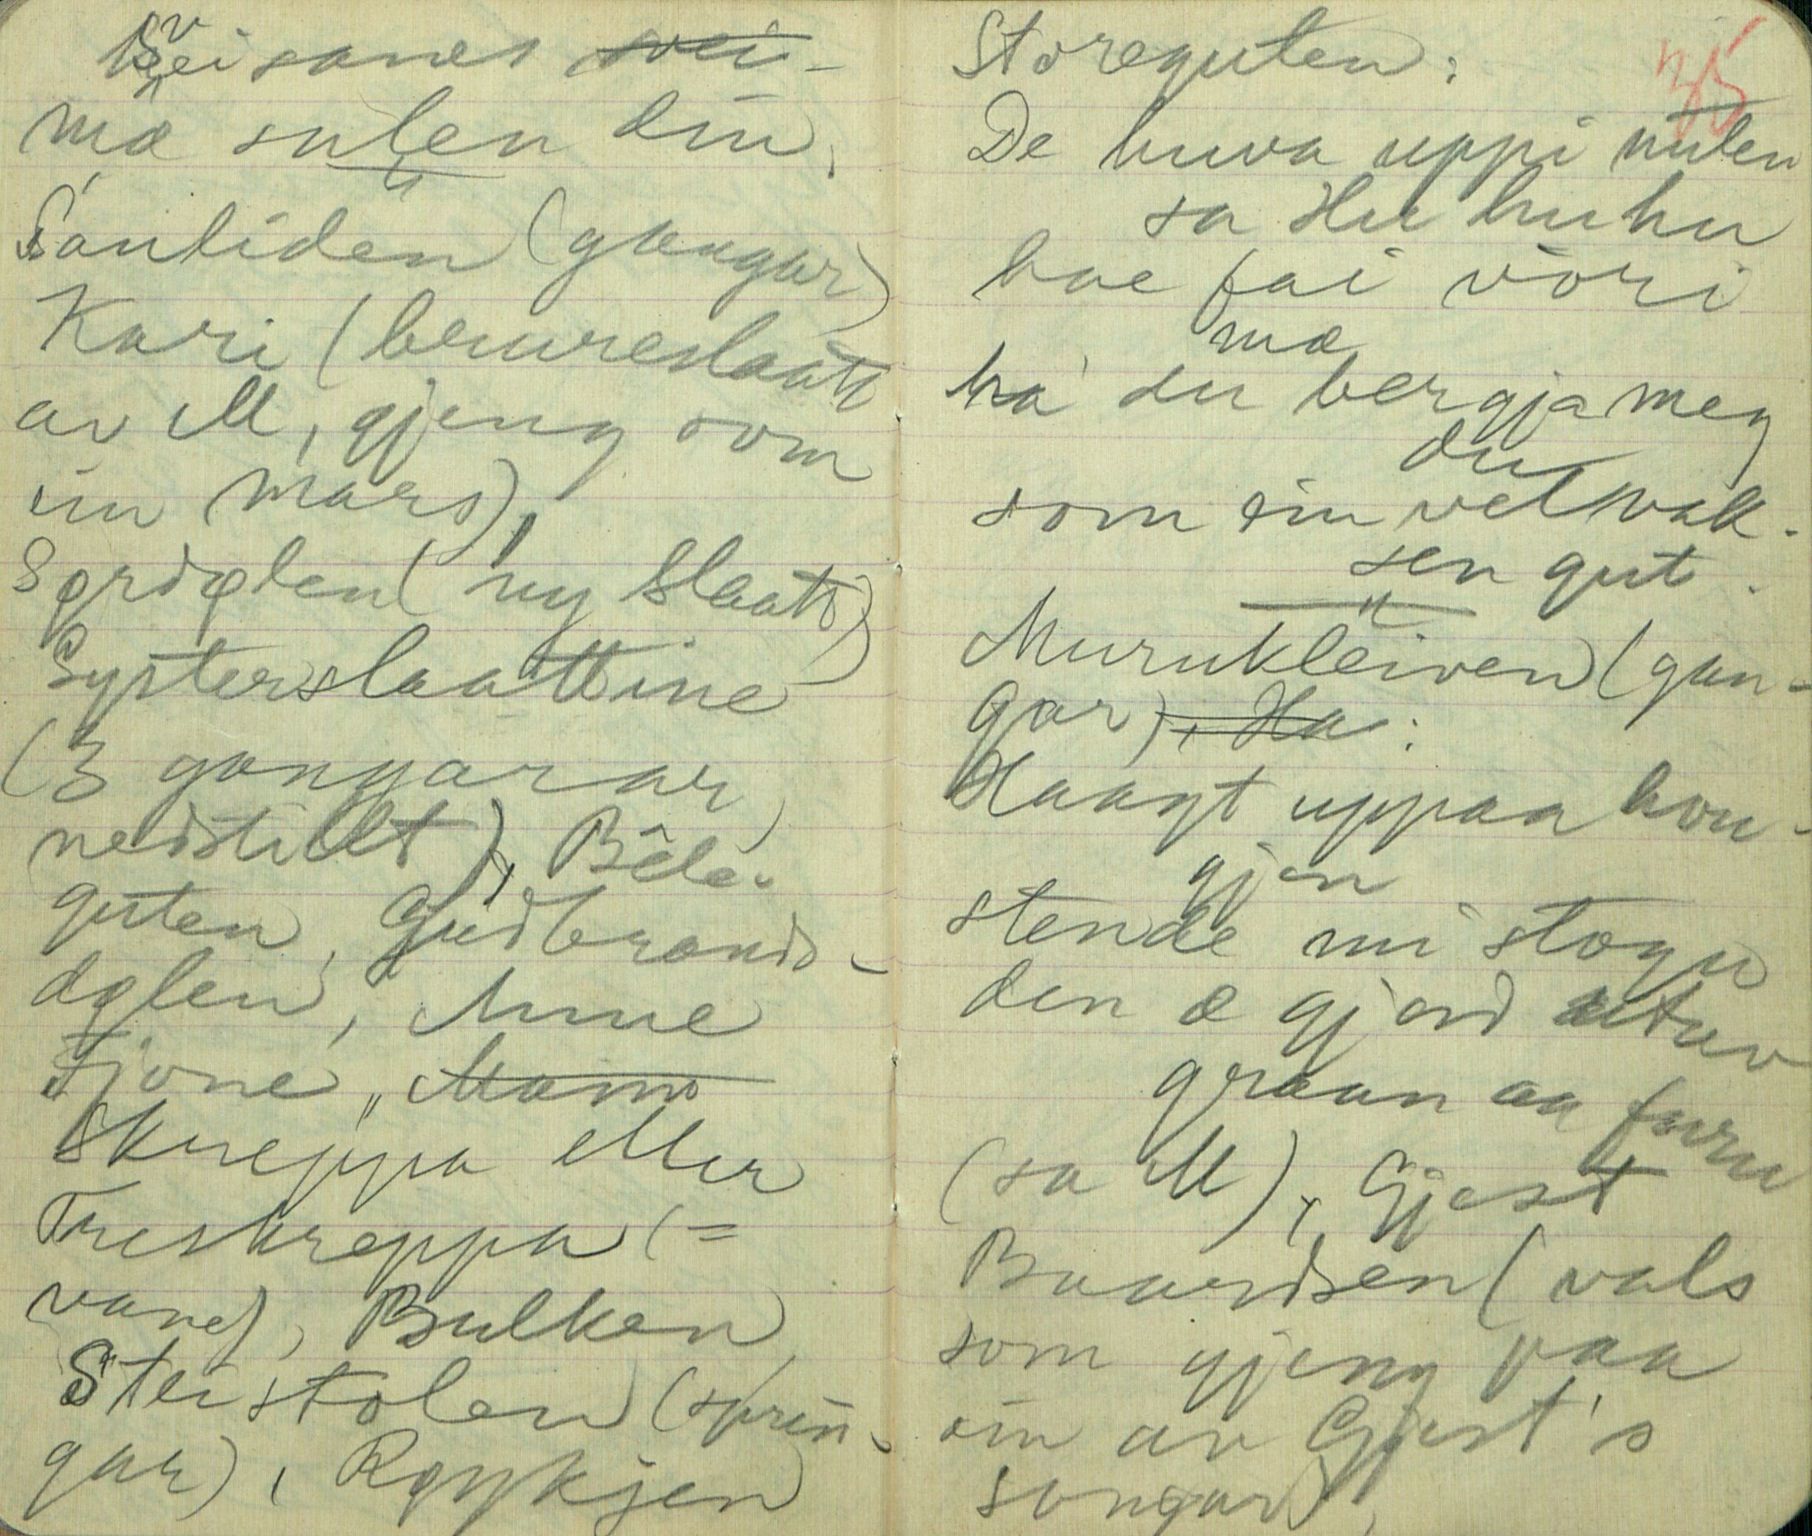 sves
mæ sulen din,
Santiden (gangar)
Kari (bruureslaatt
av M, gjeng som
ein mars),
Sprdølen (ny slaatt)
Systerslaattine
(3 gangarar,
nedstillt), Bêle-
guten, Gudbrands-
dølen, Anne
Fjone,
Skreppa eller
Treskreppa (=
vand), Bulken,
Steistolen (sprin-
gar), Røykjen
Storeguten:
35
De huva uppi nuten
sa Hu hu hu
hae fai vori
mæ
ha du bergja meg
du
som ein vel vak-
sen gut.
Murukleiven (gan-
gar),
Haagt uppaa hou-
gjen
stende mi stogu
den æ gjord utav
graan aa furu
(sa M), Gjest
Baardsen (vals
som gjeng paa
ein av Gjest's
songar),